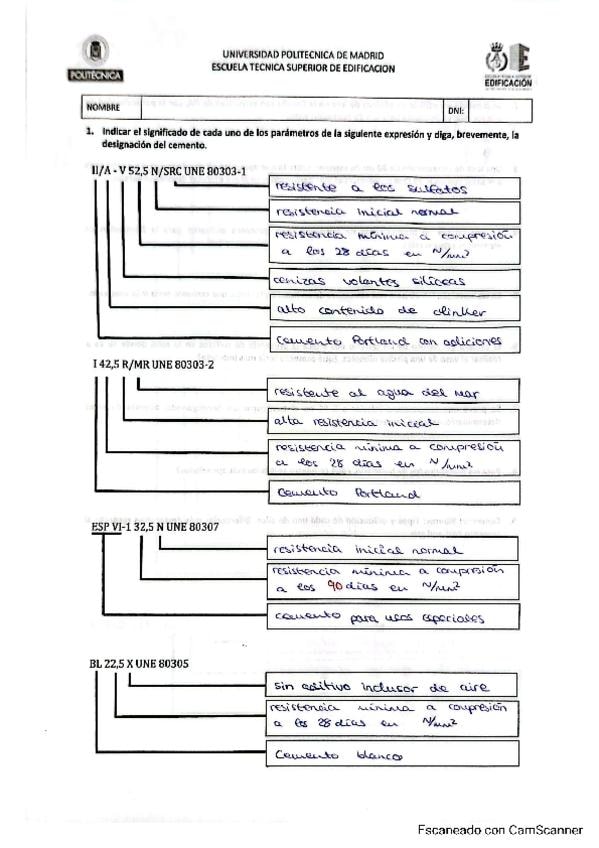 POLITÉCNICA
UNIVERSIDAD POLITECNICA DE MADRID
ESCUELA TECNICA SUPERIOR DE EDIFICACION
EDIFICACIÓN
NOMBRE
DNI:
1. Indicar el significado de cada uno de los parámetros de la siguiente expresión y diga, brevemente, la
designación del cemento.
II/A - V 52,5 N/SRC UNE 80303-1
resistente a los sulfatos
resistencia inicial normal
resistencia mínima a compresión
a los 28 días en N/mm2
cenizas volantes silíceas
alto contenido de clinker
cemento Portland con adiciones
I 42,5 R/MR UNE 80303-2
resistente al agua del mar
alta resistencia inicial
resistencia mínima a compresión
a los 28 días en N/mm2
cemento Portland
ESP VI-1 32,5 N UNE 80307
resistencia inicial normal
resistencia mínima a compresión
a los 90 días en N/mm2
cemento para usos especiales
BL 22,5 X UNE 80305
sin aditivo inclusor de aire
resistencia mínima a compresión
a los 28 días en N/mm2
Cemento blanco
Escaneado con CamScanner